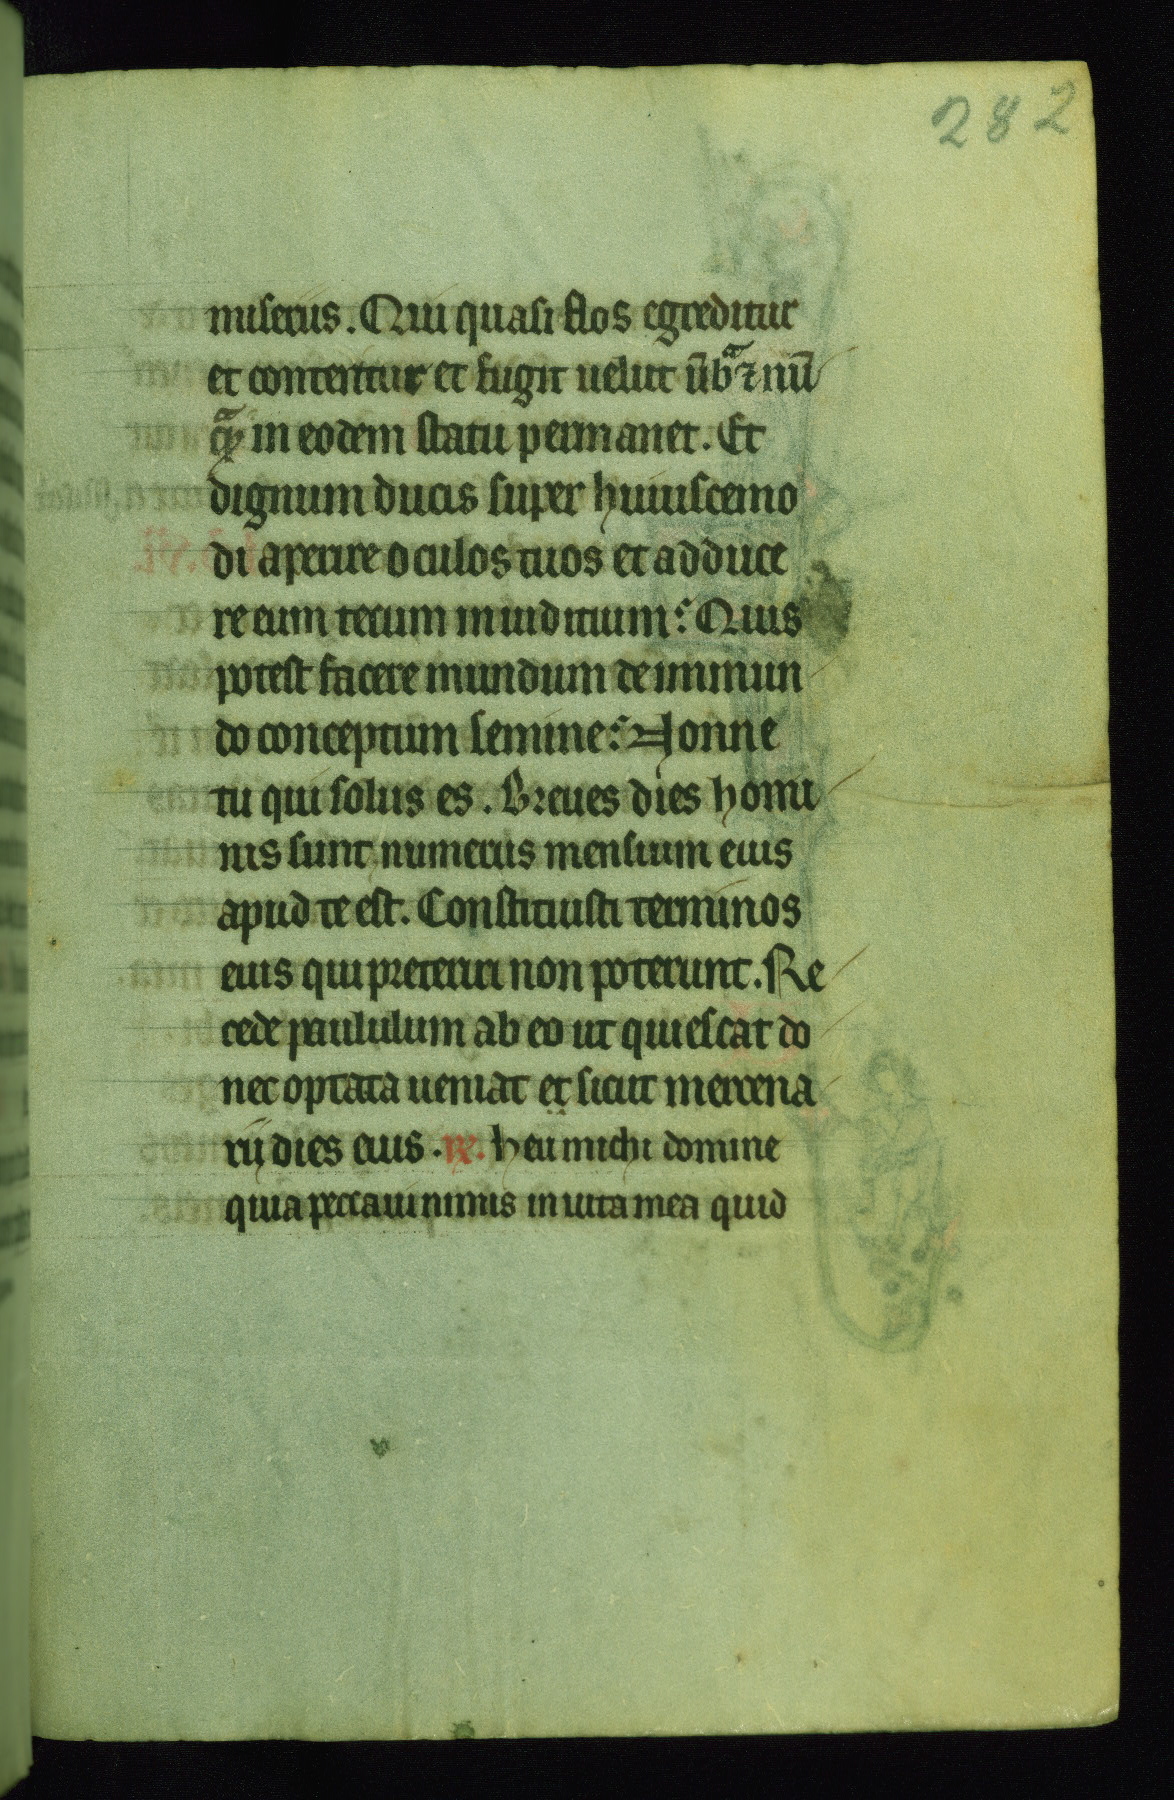 282
miseriis. Qui quasi flos egreditur
et conteritur et fugit uelut ūbᵃ ⁊ nū
qᵃ in eodem statu permanet. Et
dignum ducis super huiuscemo
di aperire oculos tuos et adduce
re eum tecum in iuditium? Quis
potest facere mundum de immun
do conceptum semine? Nonne
tu qui solus es. Breues dies homi
nis sunt numerus mensium eius
apud te est. Constituisti terminos
eius qui preteriri non poterunt. Re
cede paululum ab eo ut quiescat do
nec optata ueniat et sicut mercena
rii dies eius. ꝶ. heu michi domine
quia peccaui nimis in uita mea quid